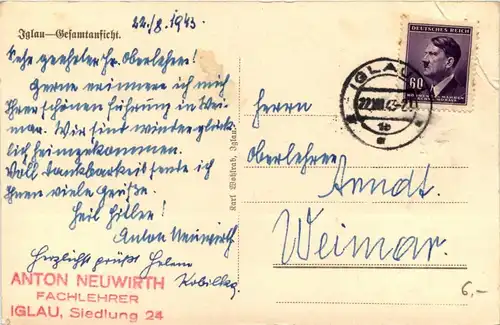 22./8. 1943
Iglau—Gesamtansicht.
Sehr geehrter Hr. Oberlehrer!
Gerne erinnere ich mich
Ihrer schönen Führung in Wei-
mar. Wir sind wieder glück-
lich heimgekommen.
Voll Dankbarkeit sende ich
Ihnen viele Grüße.
Heil Hitler!
Anton Neuwirth
Herzlichst grüßt Helene
ANTON NEUWIRTH
FACHLEHRER
IGLAU, Siedlung 24
Karl Wohlrab, Iglau.
DEUTSCHES REICH
60
BÖHMEN UND MÄHREN
IGLAU
22.VIII.43
1b
Herrn
Oberlehrer
Arndt.
Weimar.
6,-